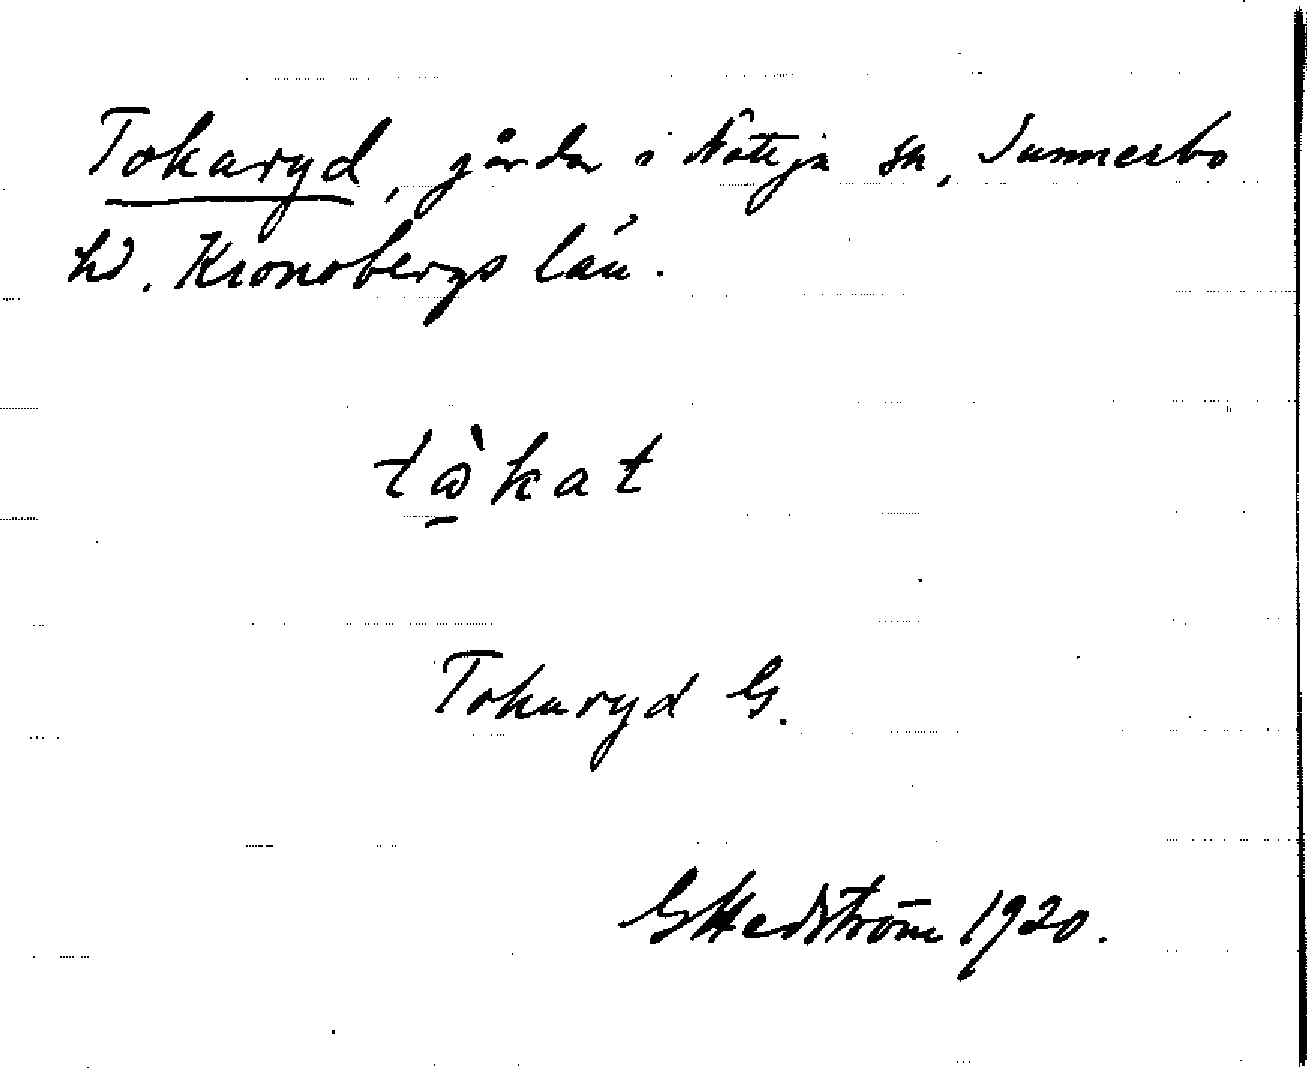 Tokaryd, gårdar i Nöttja sn, Sunnerbo
hd. Kronobergs län.
tὼ̱kat
Tokaryd G.
GHedström 1920.